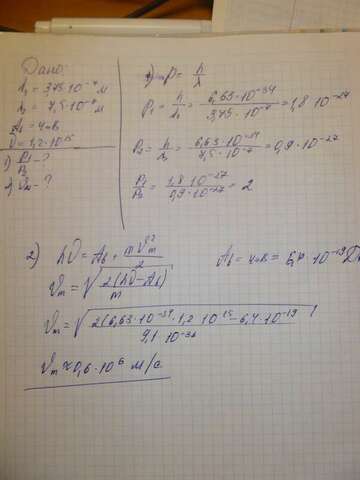 Дано:
λ₁ = 3,75·10⁻⁷ м
λ₂ = 7,5·10⁻⁷ м
Aв = 4 эВ
ν = 1,2·10¹⁵
1) P₁/P₂ - ?
2) Vm - ?
1) P = h/λ
P₁ = h/λ₁ = 6,63·10⁻³⁴/3,75·10⁻⁷ = 1,8·10⁻²⁷
P₂ = h/λ₂ = 6,63·10⁻³⁴/7,5·10⁻⁷ = 0,9·10⁻²⁷
P₁/P₂ = 1,8·10⁻²⁷/0,9·10⁻²⁷ = 2
2) hν = Aв + mVm²/2
Aв = 4 эВ = 6,4·10⁻¹⁹ Дж
Vm = √(2(hν - Aв)/m)
Vm = √(2(6,63·10⁻³⁴·1,2·10¹⁵ - 6,4·10⁻¹⁹)/9,1·10⁻³¹)
Vm ≈ 0,6·10⁶ м/с